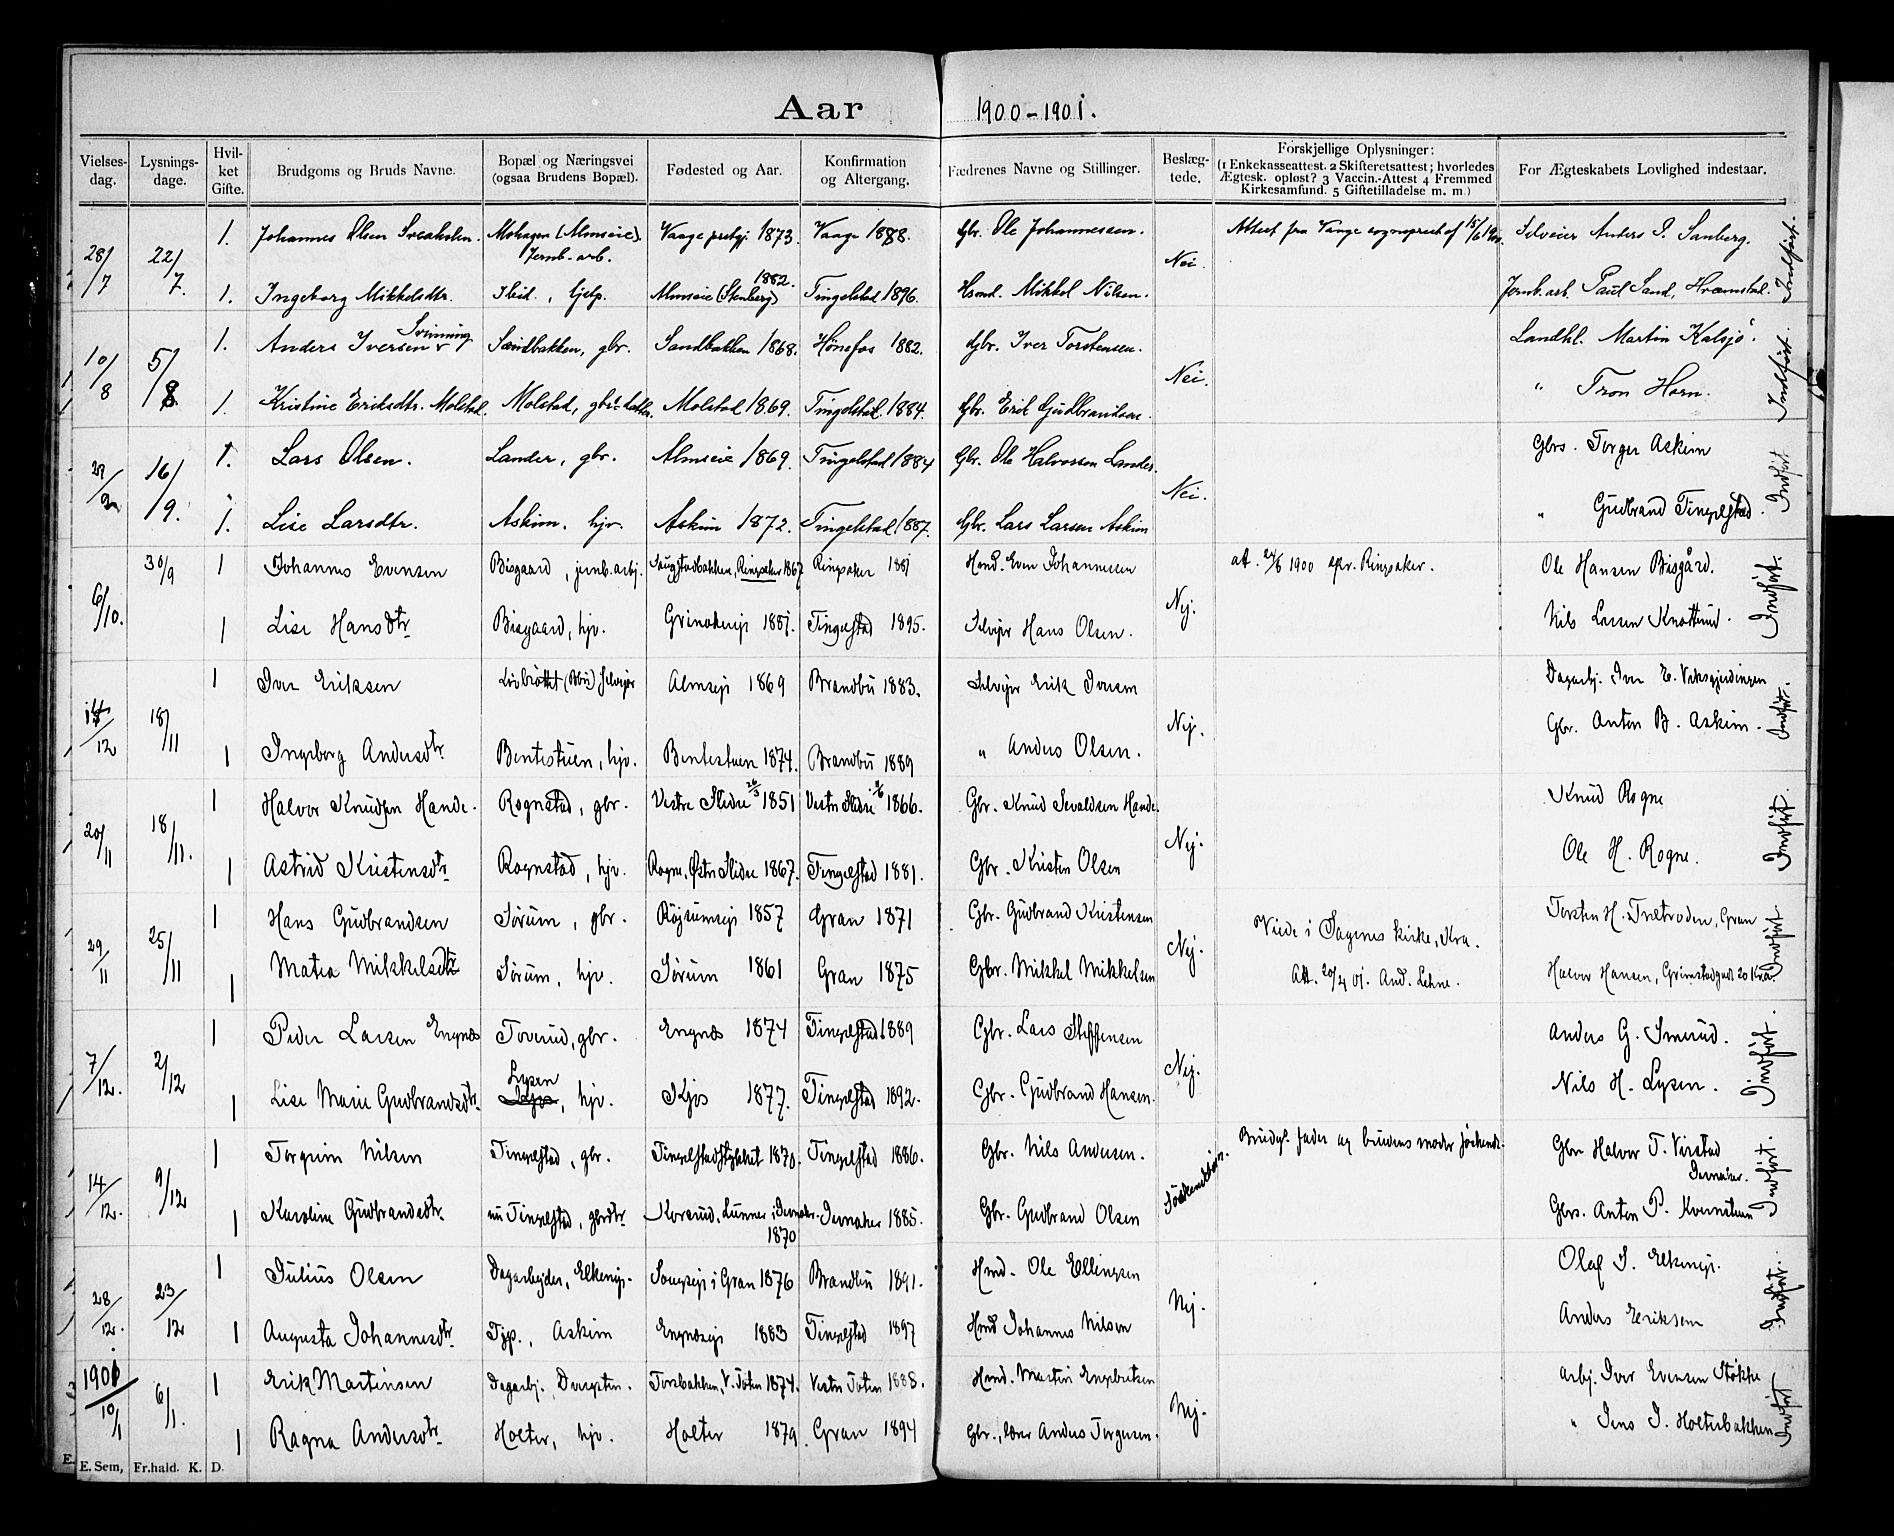 Aar 1900-1901.
Vielses-dag. Lysnings-dage. Hvil-ket Gifte. Brudgoms og Bruds Navne. Bopæl og Næringsvei (ogsaa Brudens Bopæl). Fødested og Aar. Konfirmation og Altergang. Fædrenes Navne og Stillinger. Beslæg-tede. Forskjellige Oplysninger: (1 Enkekasseattest. 2 Skifteretsattest; hvorledes Ægtesk. opløst? 3 Vaccin.-Attest 4 Fremmed Kirkesamfund. 5 Giftetilladelse m. m.) For Ægteskabets Lovlighed indestaar.
28/7 22/7 1. Johannes Olsen 1873. Vaage 1888. Gbr. Ole Johannessen. Nei. Selveier Anders P. Sanberg. Indført.
Jernb. arb.
1. Ingeborg Mikkelsdtr. Ibid., hjelp. Almseie (Stenberg) 1882. Tingelstad 1896. Hsmd. Mikkel Nilsen. Jernb. arb. Paul Sand,
10/8 5/8 1. Anders Iversen Svinning Sandbakken, gbr. Sandbakken 1868. Hønefos 1882. Gbr. Iver Torstensen. Nei. Landhl. Martin Kalsjø. Indført.
1. Kristine Eriksdtr. Molstad. Molstad, gbr. datter. Molstad 1869. Tingelstad 1884. Gbr. Erik Gudbrandsen. " Tron Horn.
16/9. 1. Lars Olsen. Lander, gbr. Almseie 1869. Tingelstad 1884 Gbr. Ole Halvorsen Lander. Nei. Gbrs. Torger Askim Indført.
1. Lise Larsdtr. Askim, hjv. Askim 1872. Tingelstad 1887. Gbr. Lars Larsen Askim " Gudbrand Tingelstad.
6/10. 30/9 1 Johannes Evensen Bisgaard, jernb.arbj. Ringsaker 1867 Ringsaker 1881 Hsmd. Even Johannessen Nej. att. 24/8 1900 spr. Ringsaker. Ole Hansen Bisgård. Indført.
1 Lise Hansdtr Bisgaard, hjv. 1881. Tingelstad 1895. Selvejer Hans Olsen. Nils Larsen Knattrud.
12 18/11 1 Iver Eriksen selvejer Almseje 1869 Brandbu 1883. Selvejer Erik Iversen Nej. Dagarbj. Iver E. Indført.
1 Ingeborg Andersdtr Bentestuen, hjv. Bentestuen 1874. Brandbu 1889 " Anders Olsen. Gbr. Anton B. Askim.
20/11 18/11. 1 Halvor Knudsen Hande. Rognstad, gbr. Vestre Slidre 26/3 1851 Vestre Slidre 1866. Gbr. Knud Sevaldsen Hande. Nej. Knud Rogne Indført.
1 Astrid Kristensdtr Rognstad, hjv. Rogne, Østre Slidre 1867. Tingelstad 1881. Gbr. Kristen Olsen Ole H. Rogne.
29/11 25/11 1 Hans Gudbrandsen Sørum, gbr. Røjsumseje 1857 Gran 1871 Gbr. Gudbrand Kristensen Nej. Viede i Sagenes kirke, Kra. Torsten H. Gran Indført.
1 Matea Mikkelsdtr Sørum, hjv. Sørum 1861 Gran 1875 Gbr. Mikkel Mikkelsen Att. 20/4 01. And. Lehne. Halvor Hansen, Grimstadgade 20 Kra.
7/12. 2/12 1 Peder Larsen Engnæs Toverud, gbr. Engnæs 1874 Tingelstad 1889 Gbr. Lars Steffensen Nej. Anders G. Smerud. Indført.
1 Lise Marie Gudbrandsdtr. Lysen, hjv. Skjøs 1877. Tingelstad 1892. Gbr. Gudbrand Hansen. Nils H. Lysen.
14/12. 9/12 1 Torgrim Nilsen Tingelstad, gbr. Tingelstadstykket 1870. Tingelstad 1886. Gbr. Nils Andersen. Søskendebørn. Brudgs. fader og brudens moder søskende. Gbr Halvor T. Virstad Jevnaker. Indført.
1 Karoline Gudbrandsdtr nu Tingelstad, gbrdtr. Korsrud, Lunner i Jevnaker. 1870 Jevnaker 1885. Gbr. Gudbrand Olsen Gbrs. Anton P. Kvernstuen
28/12. 23/12 1 Julius Olsen Dagarbejder, Elkenje. i Gran 1876 Brandbu 1891. Hmd. Ole Ellingsen Nej. Olaf J. Elkenje. Indført.
1 Augusta Johannesdtr. Tjp., Askim Engnæseje 1883 Tingelstad 1897 Hmd Johannes Nilsen Anders Eriksen
1901 10/1 6/1. 1 Erik Martinsen Dagarbj. Dvergsten. Torsbakken, V. Toten 1874. Vestre Toten 1888. Hsmd. Martin Engebretsen Nej. Arbj. Iver Evensen Støkke Indført
1 Ragna Andersdtr Holter, hjv. Holter 1879. Gran 1894 Gbr., lærer Anders Torgersen. " Jens J. Holterbakken
E. Sem, Fr.hald. K. D.